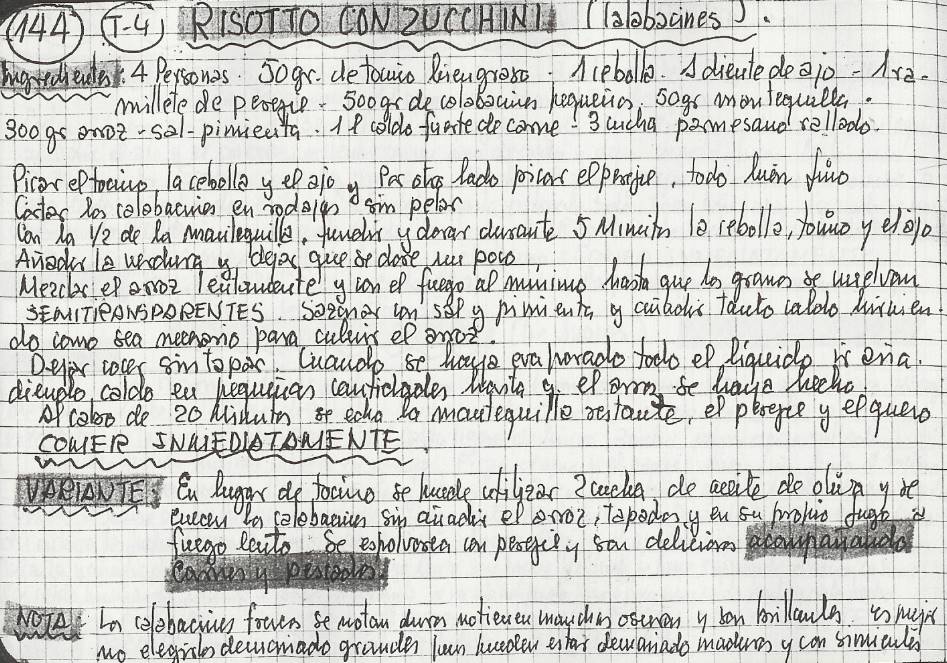 144 T-4 RISOTTO CON ZUCCHINI (Calabacines).
Ingredientes: 4 Personas. 50 gr. de tocino bien graso. 1 cebolla. 1 diente de ajo - 1 ra-
millete de perejil - 500 gr de calabacines pequeños. 50 gr mantequilla.
300 gr arroz - sal - pimienta. 1 l caldo fuerte de carne - 3 cucha parmesano rallado.
Picar el tocino, la cebolla y el ajo y Por otro lado picar el perejil, todo bien fino
Cortar los calabacines en rodajas y sin pelar
Con la 1/2 de la mantequilla, fundir y dorar durante 5 Minutos la cebolla, tocino y el ajo
Añadir la verdura y dejar que se dore un poco
Mezclar el arroz lentamente y con el fuego al minimo hasta que los granos se vuelvan
SEMITRANSPARENTES. Sazonar con sal y pimienta y añadir tanto caldo hirvien-
do como sea necesario para cubrir el arroz.
Dejar cocer sin tapar. Cuando se haya evaporado todo el líquido ir aña-
diendo caldo en pequeñas cantidades hasta q. el arroz se haya hecho
Al cabo de 20 Minutos se echa la mantequilla restante, el perejil y el queso
COMER INMEDIATAMENTE.
VARIANTE: En lugar de tocino se puede utilizar 2 cucha de aceite de oliva y se
cuecen los calabacines sin añadir el arroz, tapados y en su propio jugo a
fuego lento. Se espolvorea con perejil y son deliciosos acompañando
Carnes y pescados.
NOTA: Los calabacines frescos se notan duros no tienen manchas oscuras y son brillantes. es mejor
no elegirlos demasiado grandes pues pueden estar demasiado maduros y con simientes